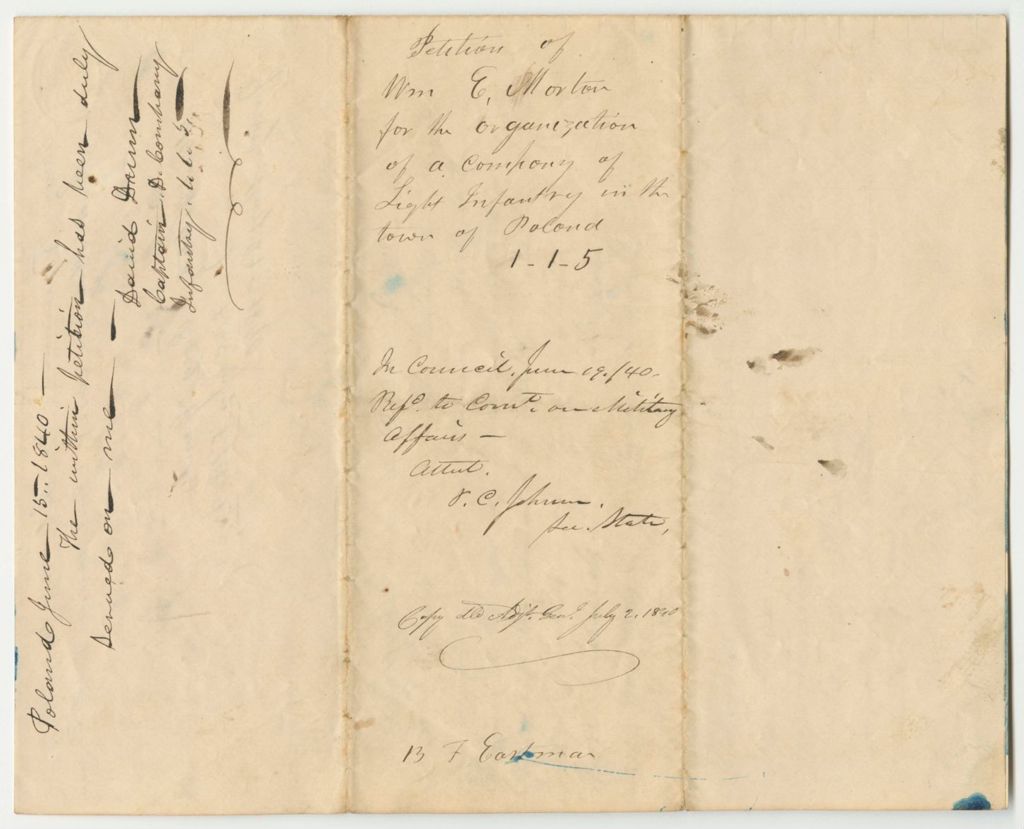 Poland June 15.. 1840 —
The within petition has been duly
served on me —
David Dunn
Captain D. Company
Infantry
Petition of
Wm E. Morton
for the organization
of a Company of
Light Infantry in the
town of Poland
1-1-5
In Council, June 19, 1840.
Refd. to Comte. on Military
Affairs —
Attest.
P. C. Johnson,
Sec. State,
Copy dld Adjt. Genl. July 2. 1840
B F Eastman